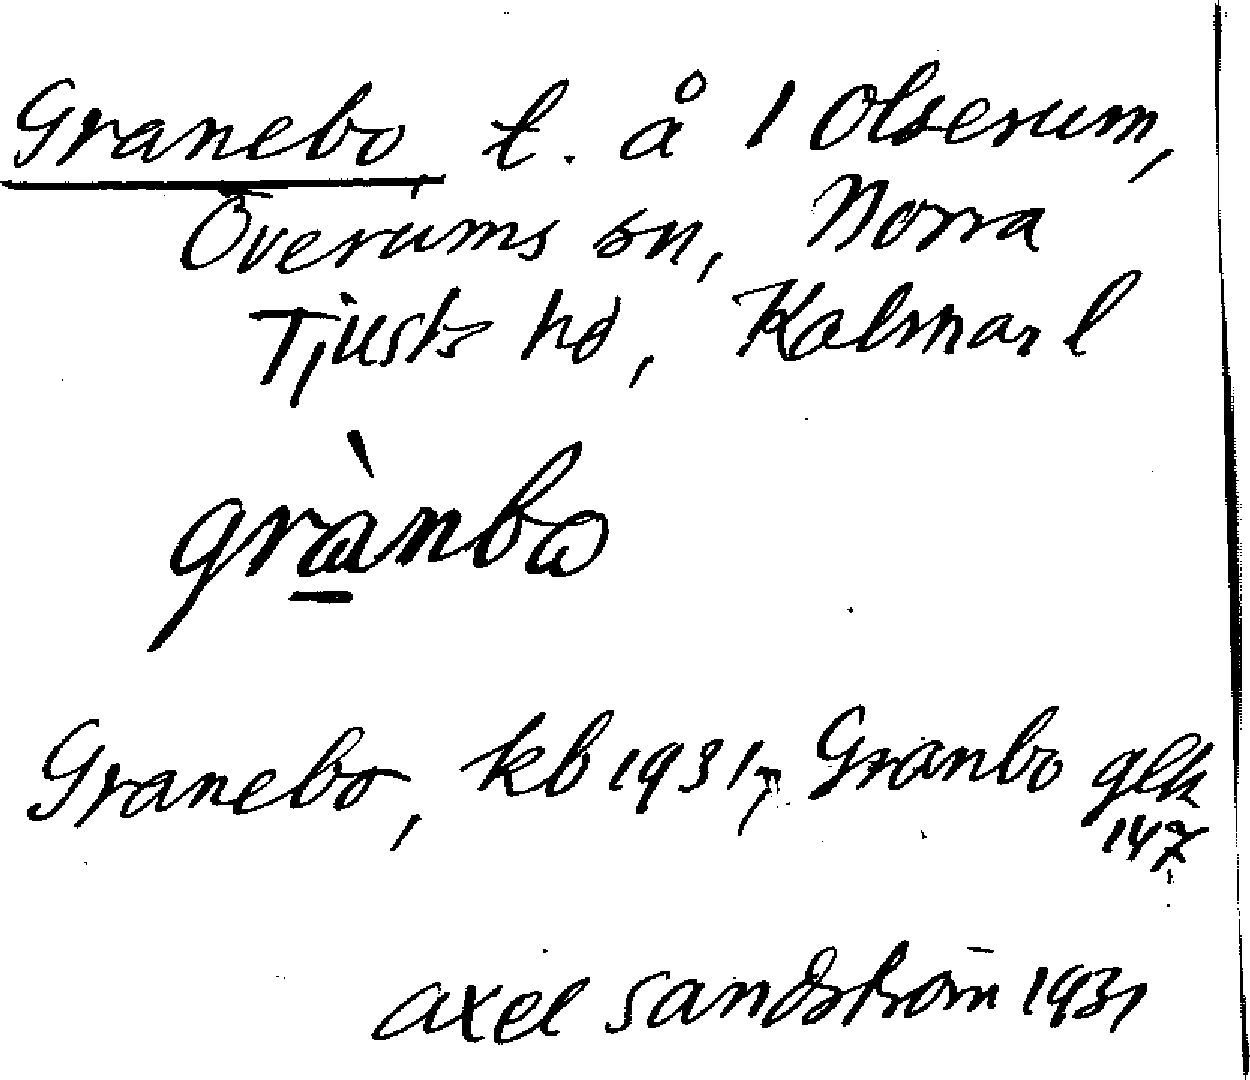 Granebo, t. å 1 Olserum,
Överums sn, Norra
Tjusts hd, Kalmar l
grànbo
Granebo, kb 1931, Granbo glk
147
axel sandström 1931